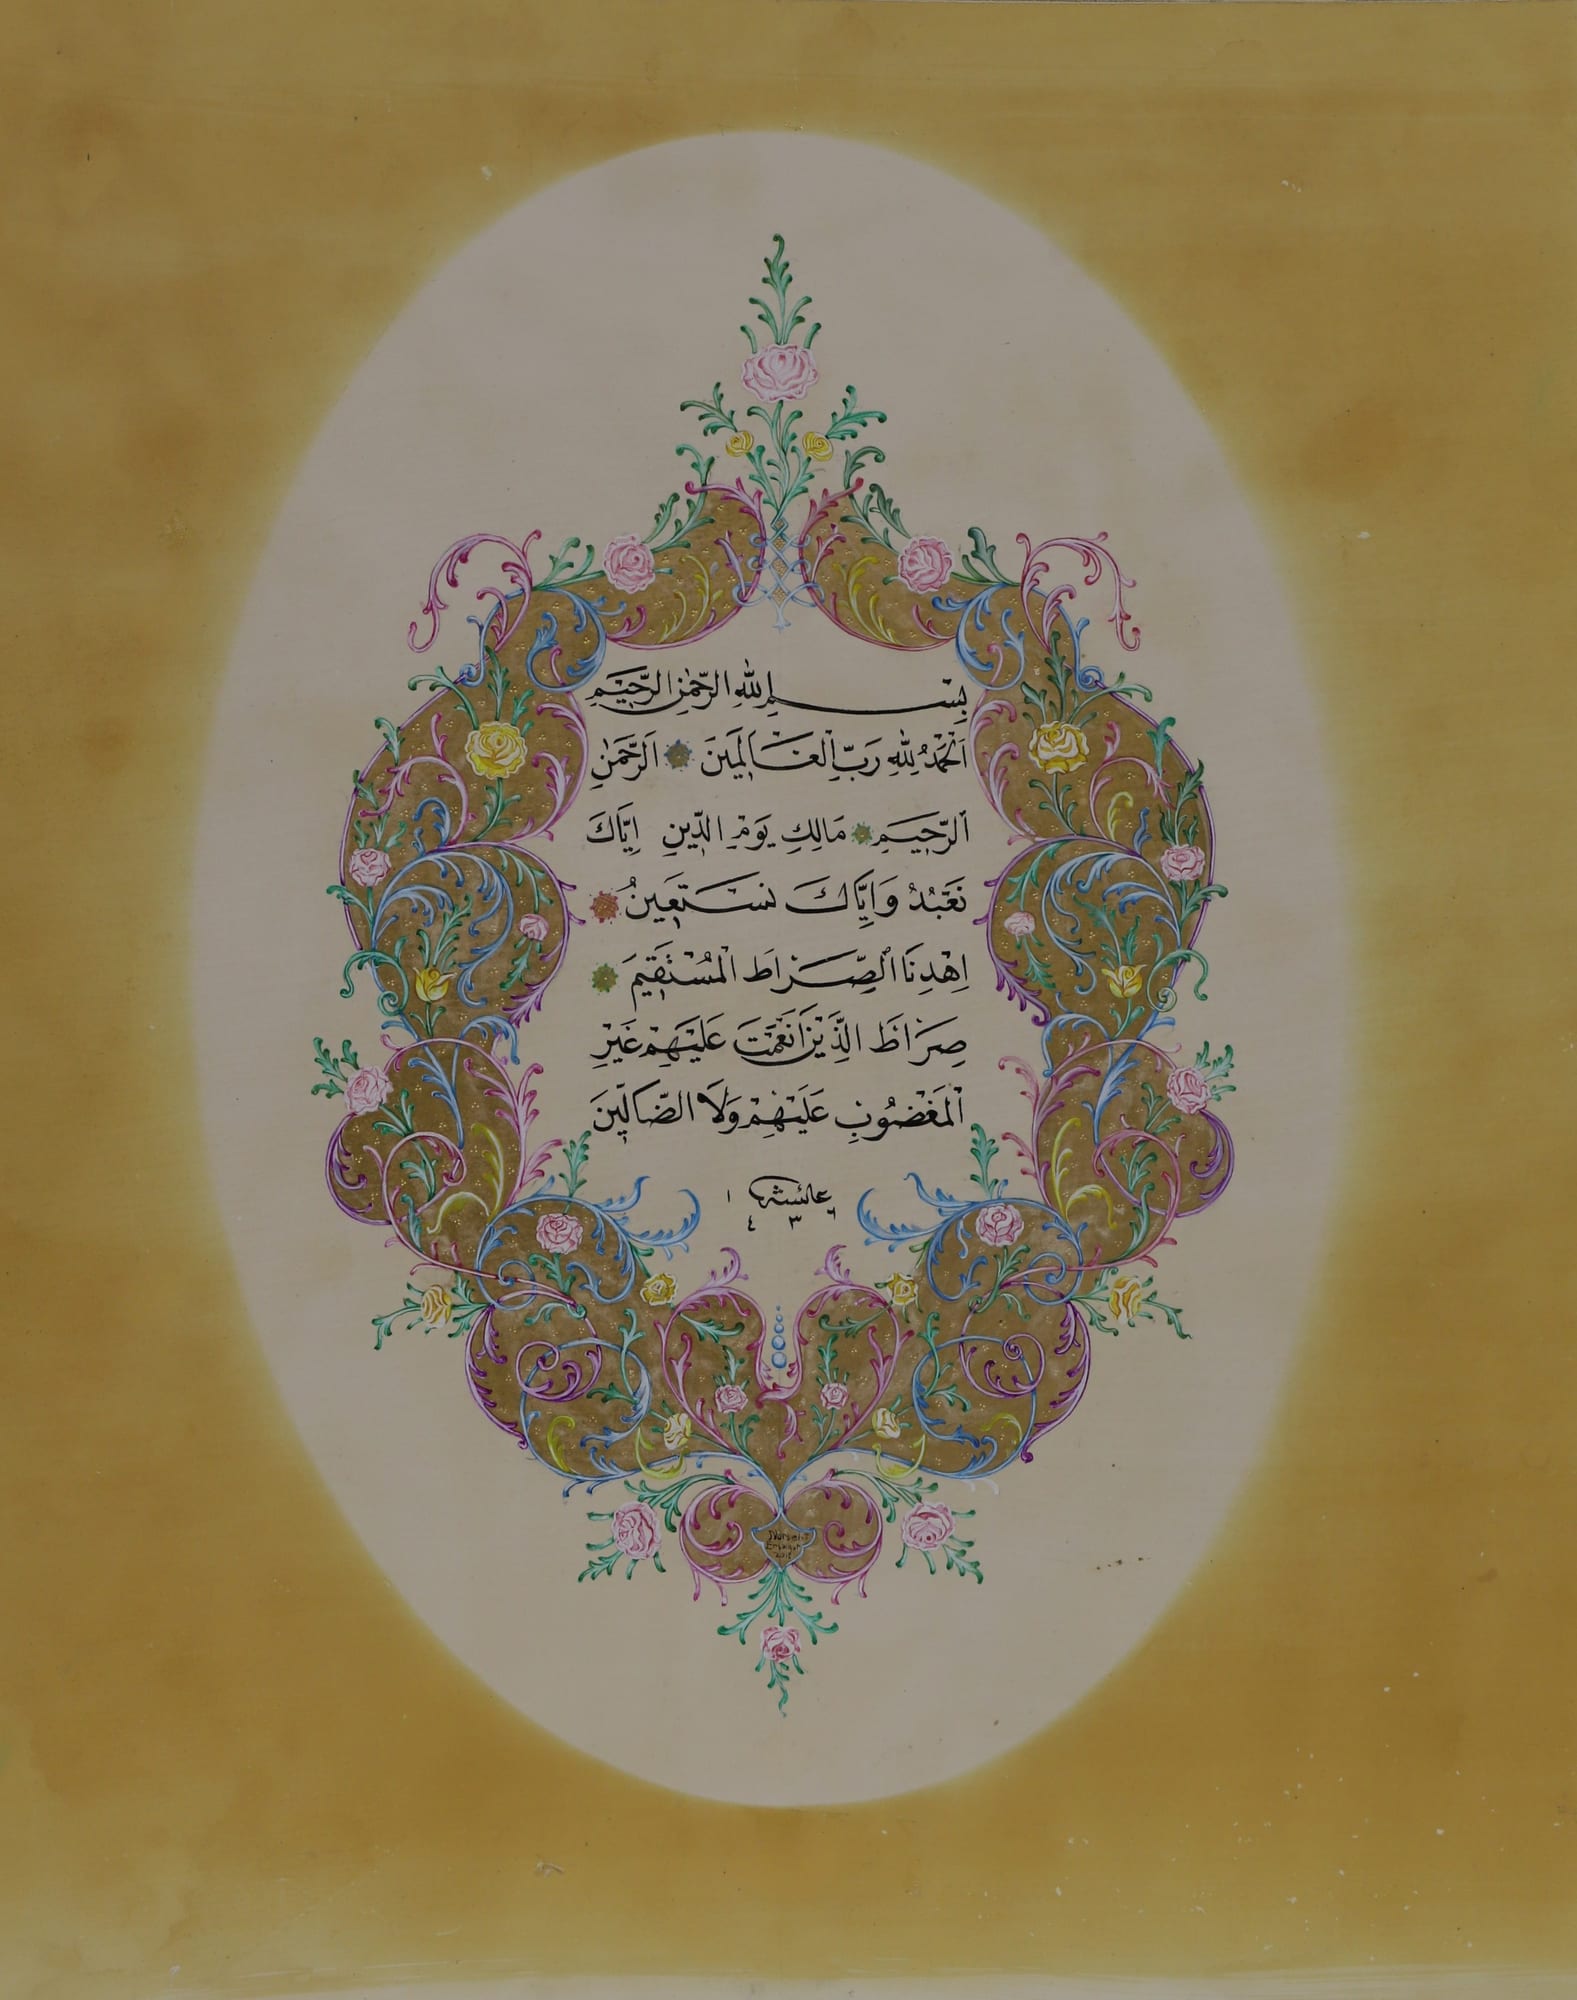 بِسْمِ اللهِ الرَّحْمٰنِ الرَّحِيْمِ
اَلْحَمْدُ لِلّٰهِ رَبِّ الْعَالَمِينَ الرَّحْمٰنِ
الرَّحِيمِ مَالِكِ يَوْمِ الدِّينِ اِيَّاكَ
نَعْبُدُ وَاِيَّاكَ نَسْتَعِينُ
اِهْدِنَا الصِّرَاطَ الْمُسْتَقِيمَ
صِرَاطَ الَّذِينَ اَنْعَمْتَ عَلَيْهِمْ غَيْرِ
الْمَغْضُوبِ عَلَيْهِمْ وَلَا الضَّالِّينَ
عائشه
١٤٣٦